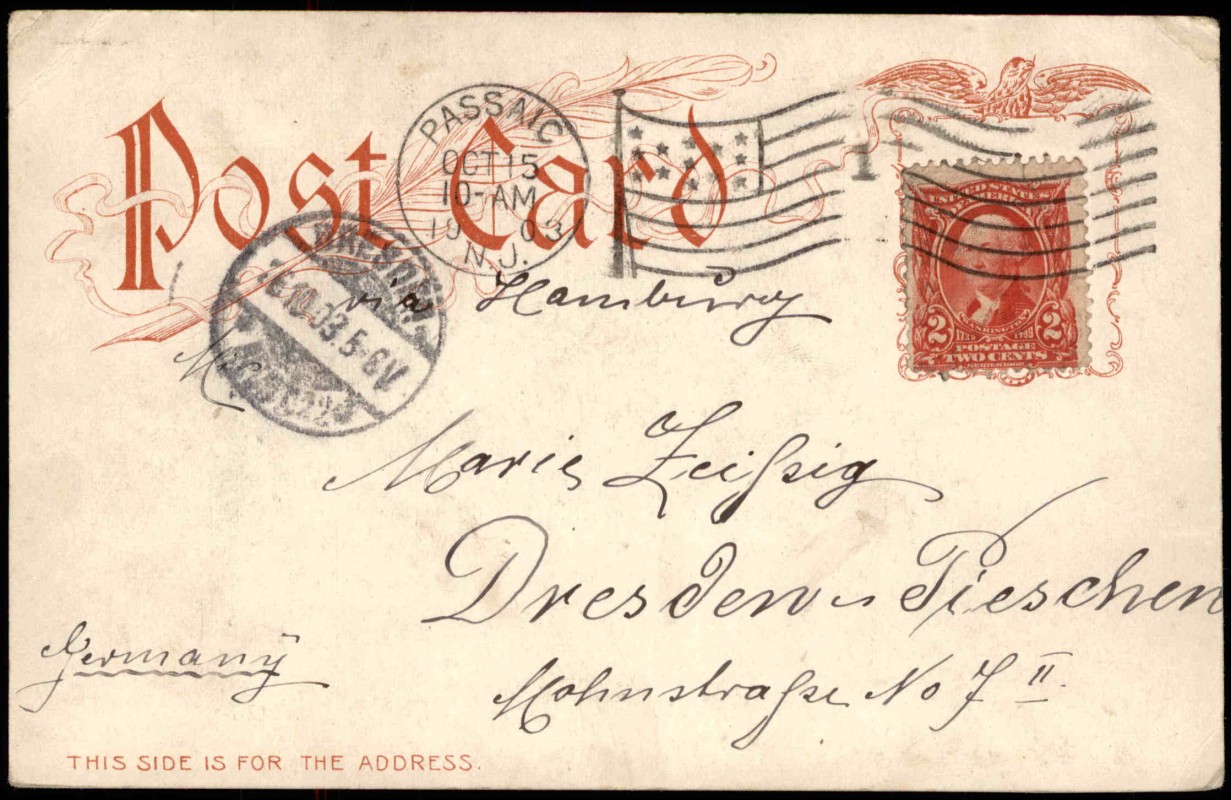 Post Card
PASSAIC
OCT 15
10-AM
1903
N.J.
1
UNITED STATES
WASHINGTON
2 2
POSTAGE
TWO CENTS
via Hamburg
DRESDEN
.10.03.5-6V
Marie Zeißig
Dresden - Pieschen
Germany
Mohnstraße No 7 II.
THIS SIDE IS FOR THE ADDRESS.